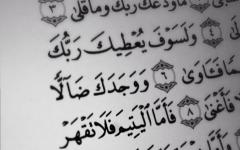 مَاوَدَّعَكَ رَبُّكَ وَمَاقَلَىٰ ٣
٤ وَلَسَوْفَ يُعْطِيكَ رَبُّكَ
مًا فَـَٔاوَىٰ ٦ وَوَجَدَكَ ضَآلًّا
فَأَغْنَىٰ ٨ فَأَمَّا ٱلْيَتِيمَ فَلَا تَقْهَرْ